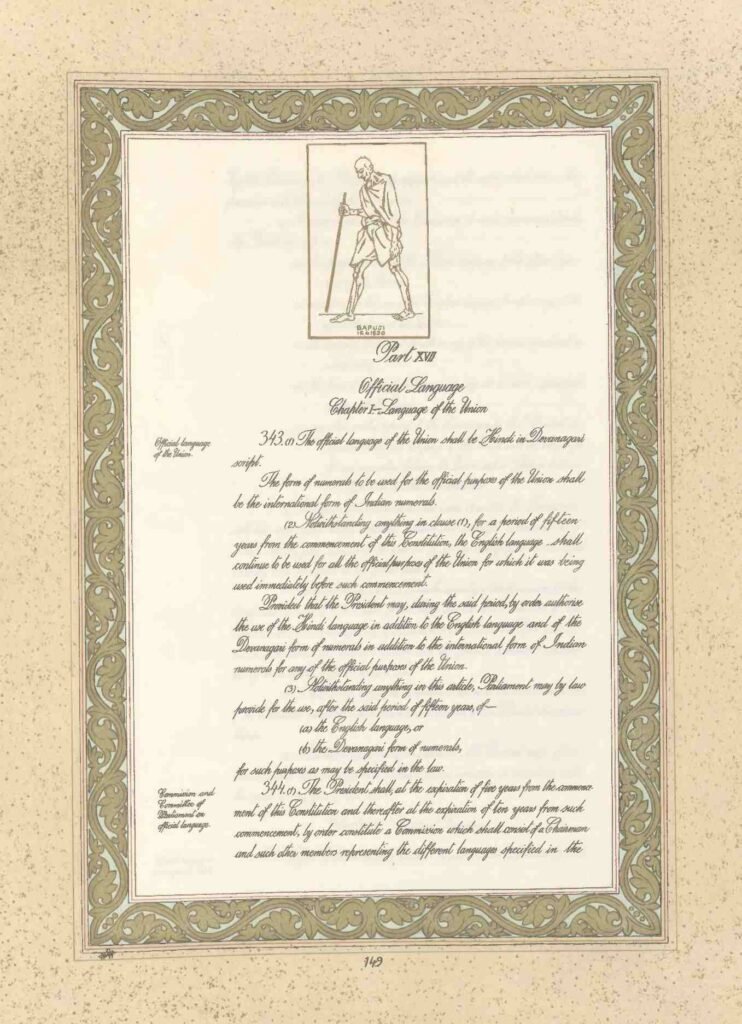 BAPUJI
12.4.1930
Part XVII
Official Language
Chapter I—Language of the Union
Official language
of the Union.
343.(1) The official language of the Union shall be Hindi in Devanagari
script.
The form of numerals to be used for the official purposes of the Union shall
be the international form of Indian numerals.
(2) Notwithstanding anything in clause (1), for a period of fifteen
years from the commencement of this Constitution, the English language shall
continue to be used for all the official purposes of the Union for which it was being
used immediately before such commencement.
Provided that the President may, during the said period, by order authorise
the use of the Hindi language in addition to the English language and of the
Devanagari form of numerals in addition to the international form of Indian
numerals for any of the official purposes of the Union.
(3) Notwithstanding anything in this article, Parliament may by law
provide for the use, after the said period of fifteen years, of—
(a) the English language, or
(b) the Devanagari form of numerals,
for such purposes as may be specified in the law.
Commission and
Committee of
Parliament on
official language.
344.(1) The President shall, at the expiration of five years from the commence
ment of this Constitution and thereafter at the expiration of ten years from such
commencement, by order constitute a Commission which shall consist of a Chairman
and such other members representing the different languages specified in the
149